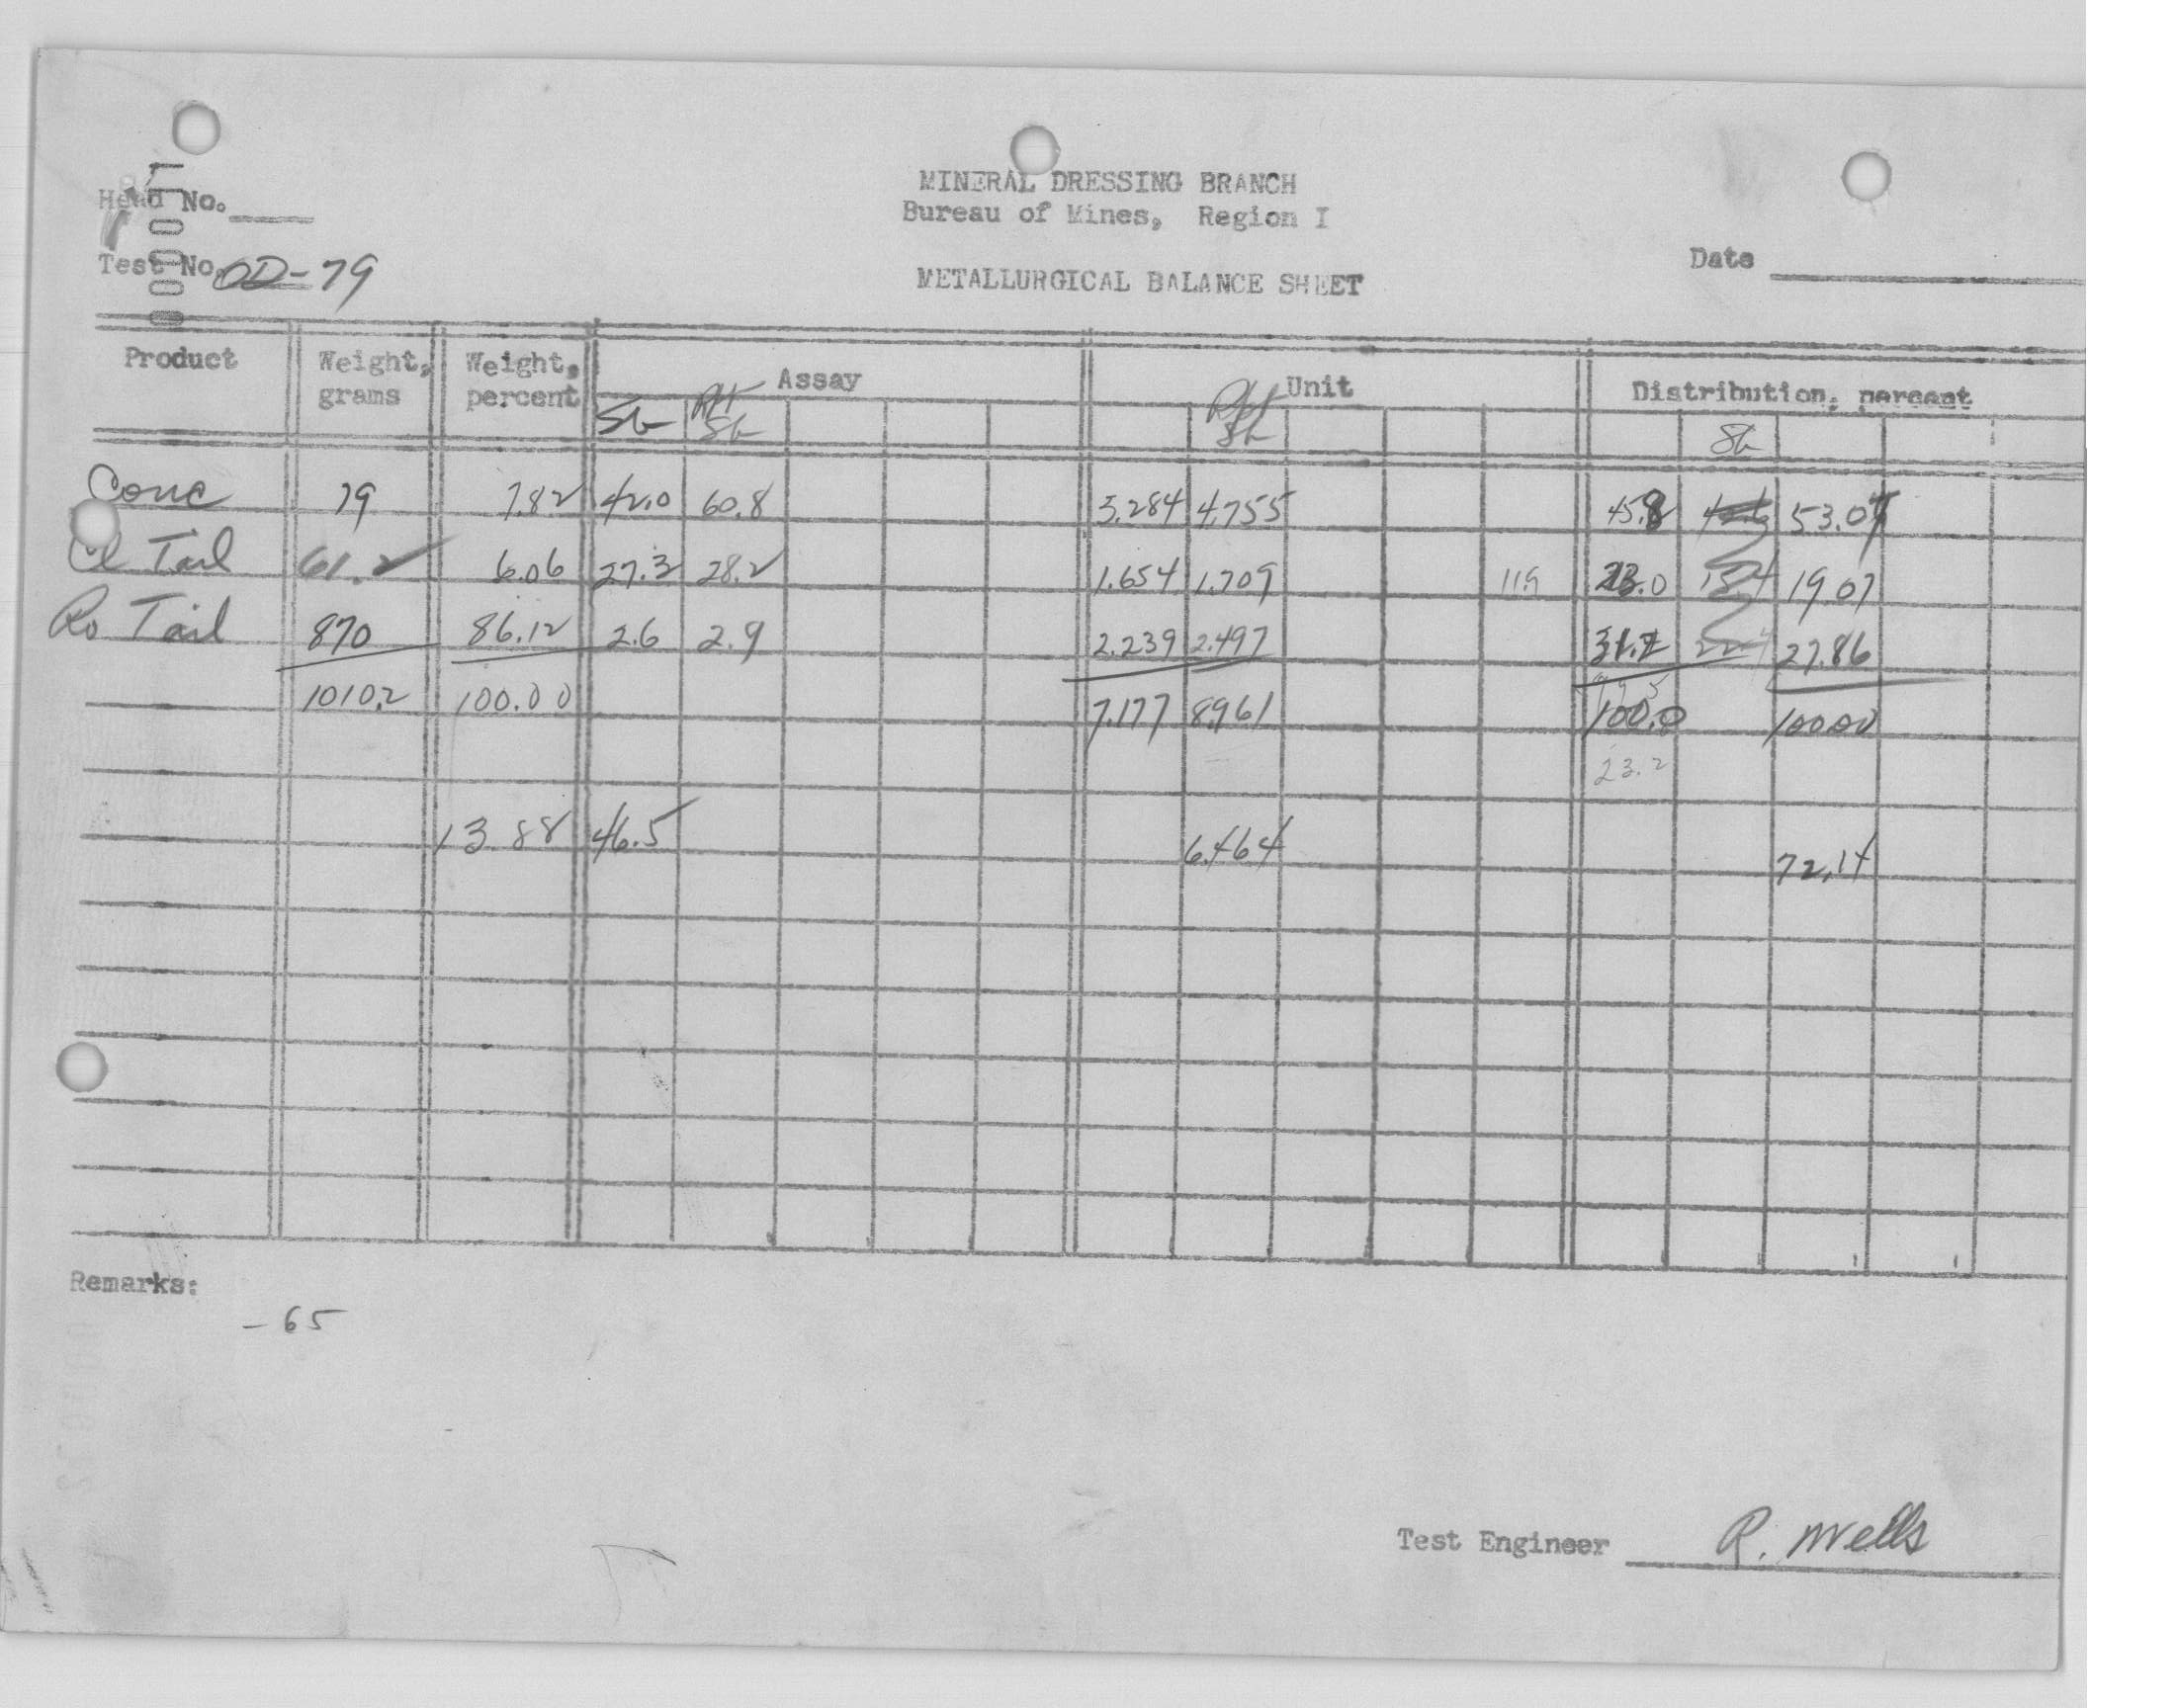 MINERAL DRESSING BRANCH
Head No.
Bureau of Mines, Region I
Test No. OD-79
Date
METALLURGICAL BALANCE SHEET
Product Weight, grams Weight, percent Assay Unit Distribution, percent
Sb Sb Sb Sb
Conc 79 7.82 42.0 60.8 3.284 4.755 45.8 53.07
Cl Tail 61.2 6.06 27.3 28.2 1.654 1.709 11.9 23.0 19.07
Ro Tail 870 86.12 2.6 2.9 2.239 2.497 27.86
1010.2 100.00 7.177 8.961 100.0 100.00
23.2
13.88 46.5 6.464 72.14
Remarks:
- 65
Test Engineer R. Wells